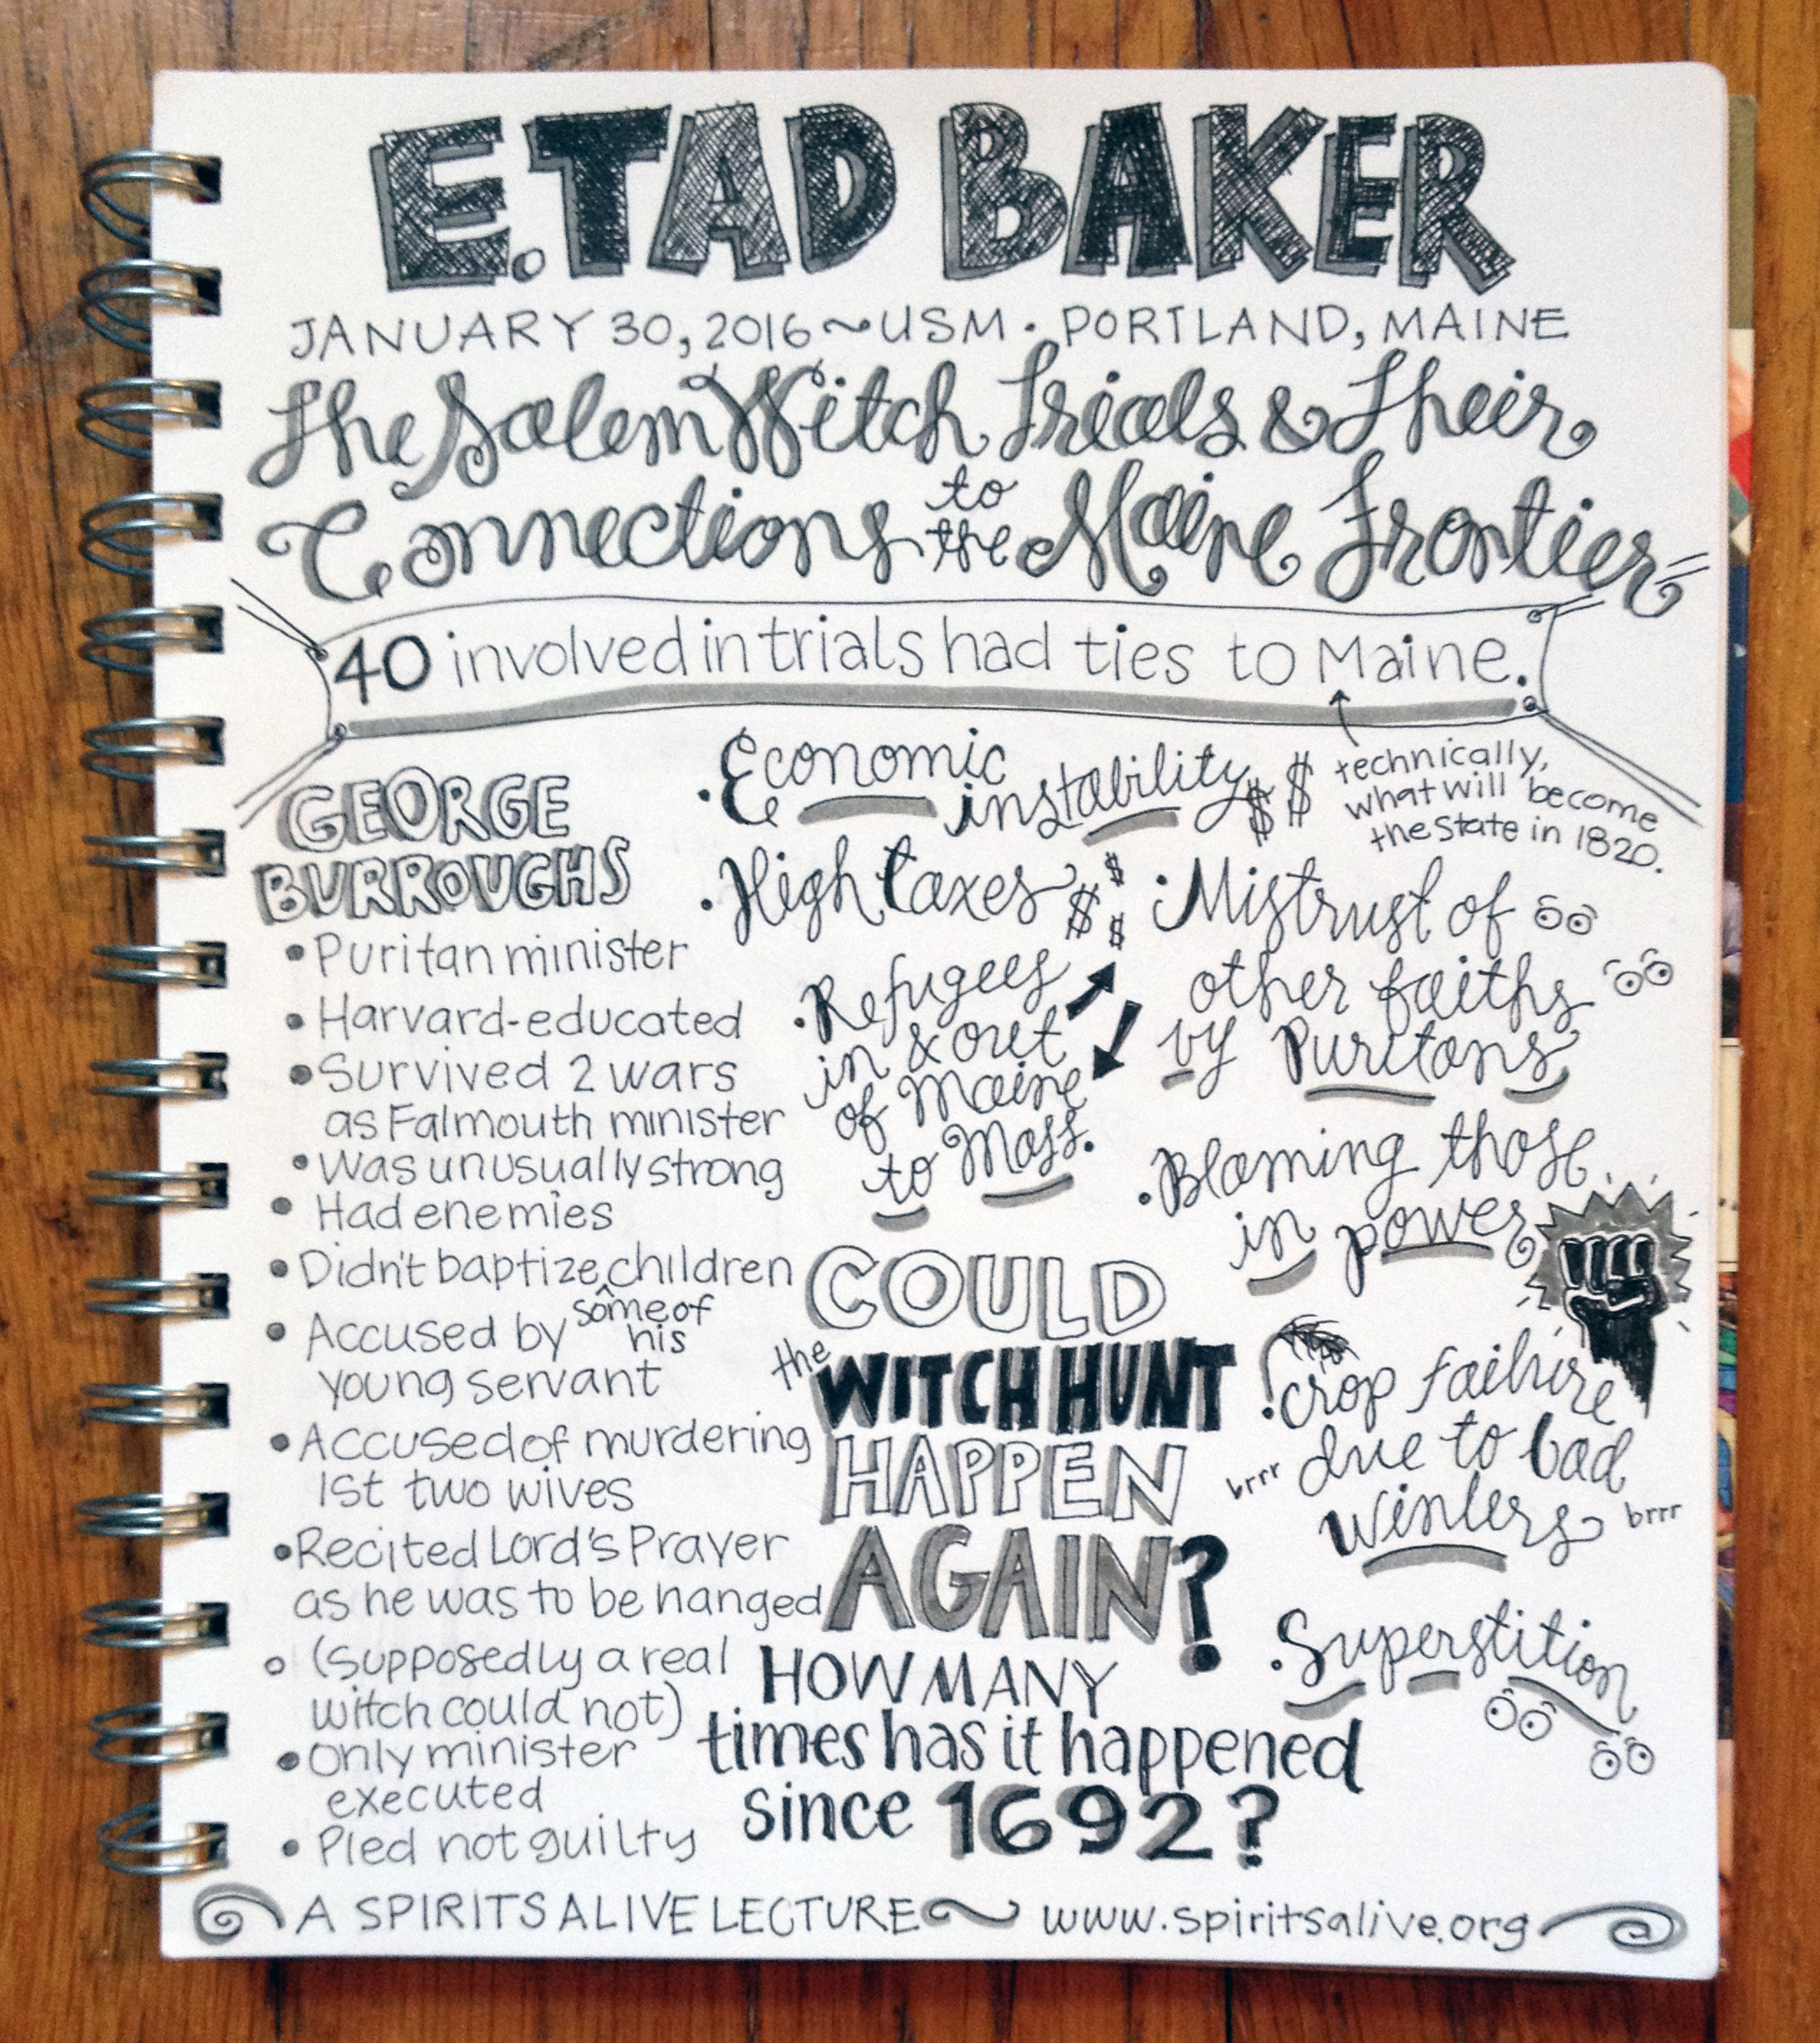 E. TAD BAKER
JANUARY 30, 2016 ~ USM · PORTLAND, MAINE
The Salem Witch Trials & Their
Connections to the Maine Frontier
40 involved in trials had ties to Maine.
technically,
what will become
the state in 1820.
GEORGE
BURROUGHS
• Puritan minister
• Harvard-educated
• Survived 2 wars
as Falmouth minister
• Was unusually strong
• Had enemies
• Didn't baptize ^ children
some of
his
• Accused by
young servant
• Accused of murdering
1st two wives
• Recited Lord's Prayer
as he was to be hanged
○ (Supposedly a real
witch could not)
• Only minister
executed
• Pled not guilty
• Economic
instability $ $
• High taxes $ $ $
• Refugees
in & out
of Maine
to Mass.
• Mistrust of
other faiths
by Puritans
• Blaming those
in power
• Crop failure
due to bad
brrr winters brrr
• Superstition
COULD
the WITCH HUNT
HAPPEN
AGAIN?
HOW MANY
times has it happened
since 1692?
A SPIRITS ALIVE LECTURE ~ www.spiritsalive.org